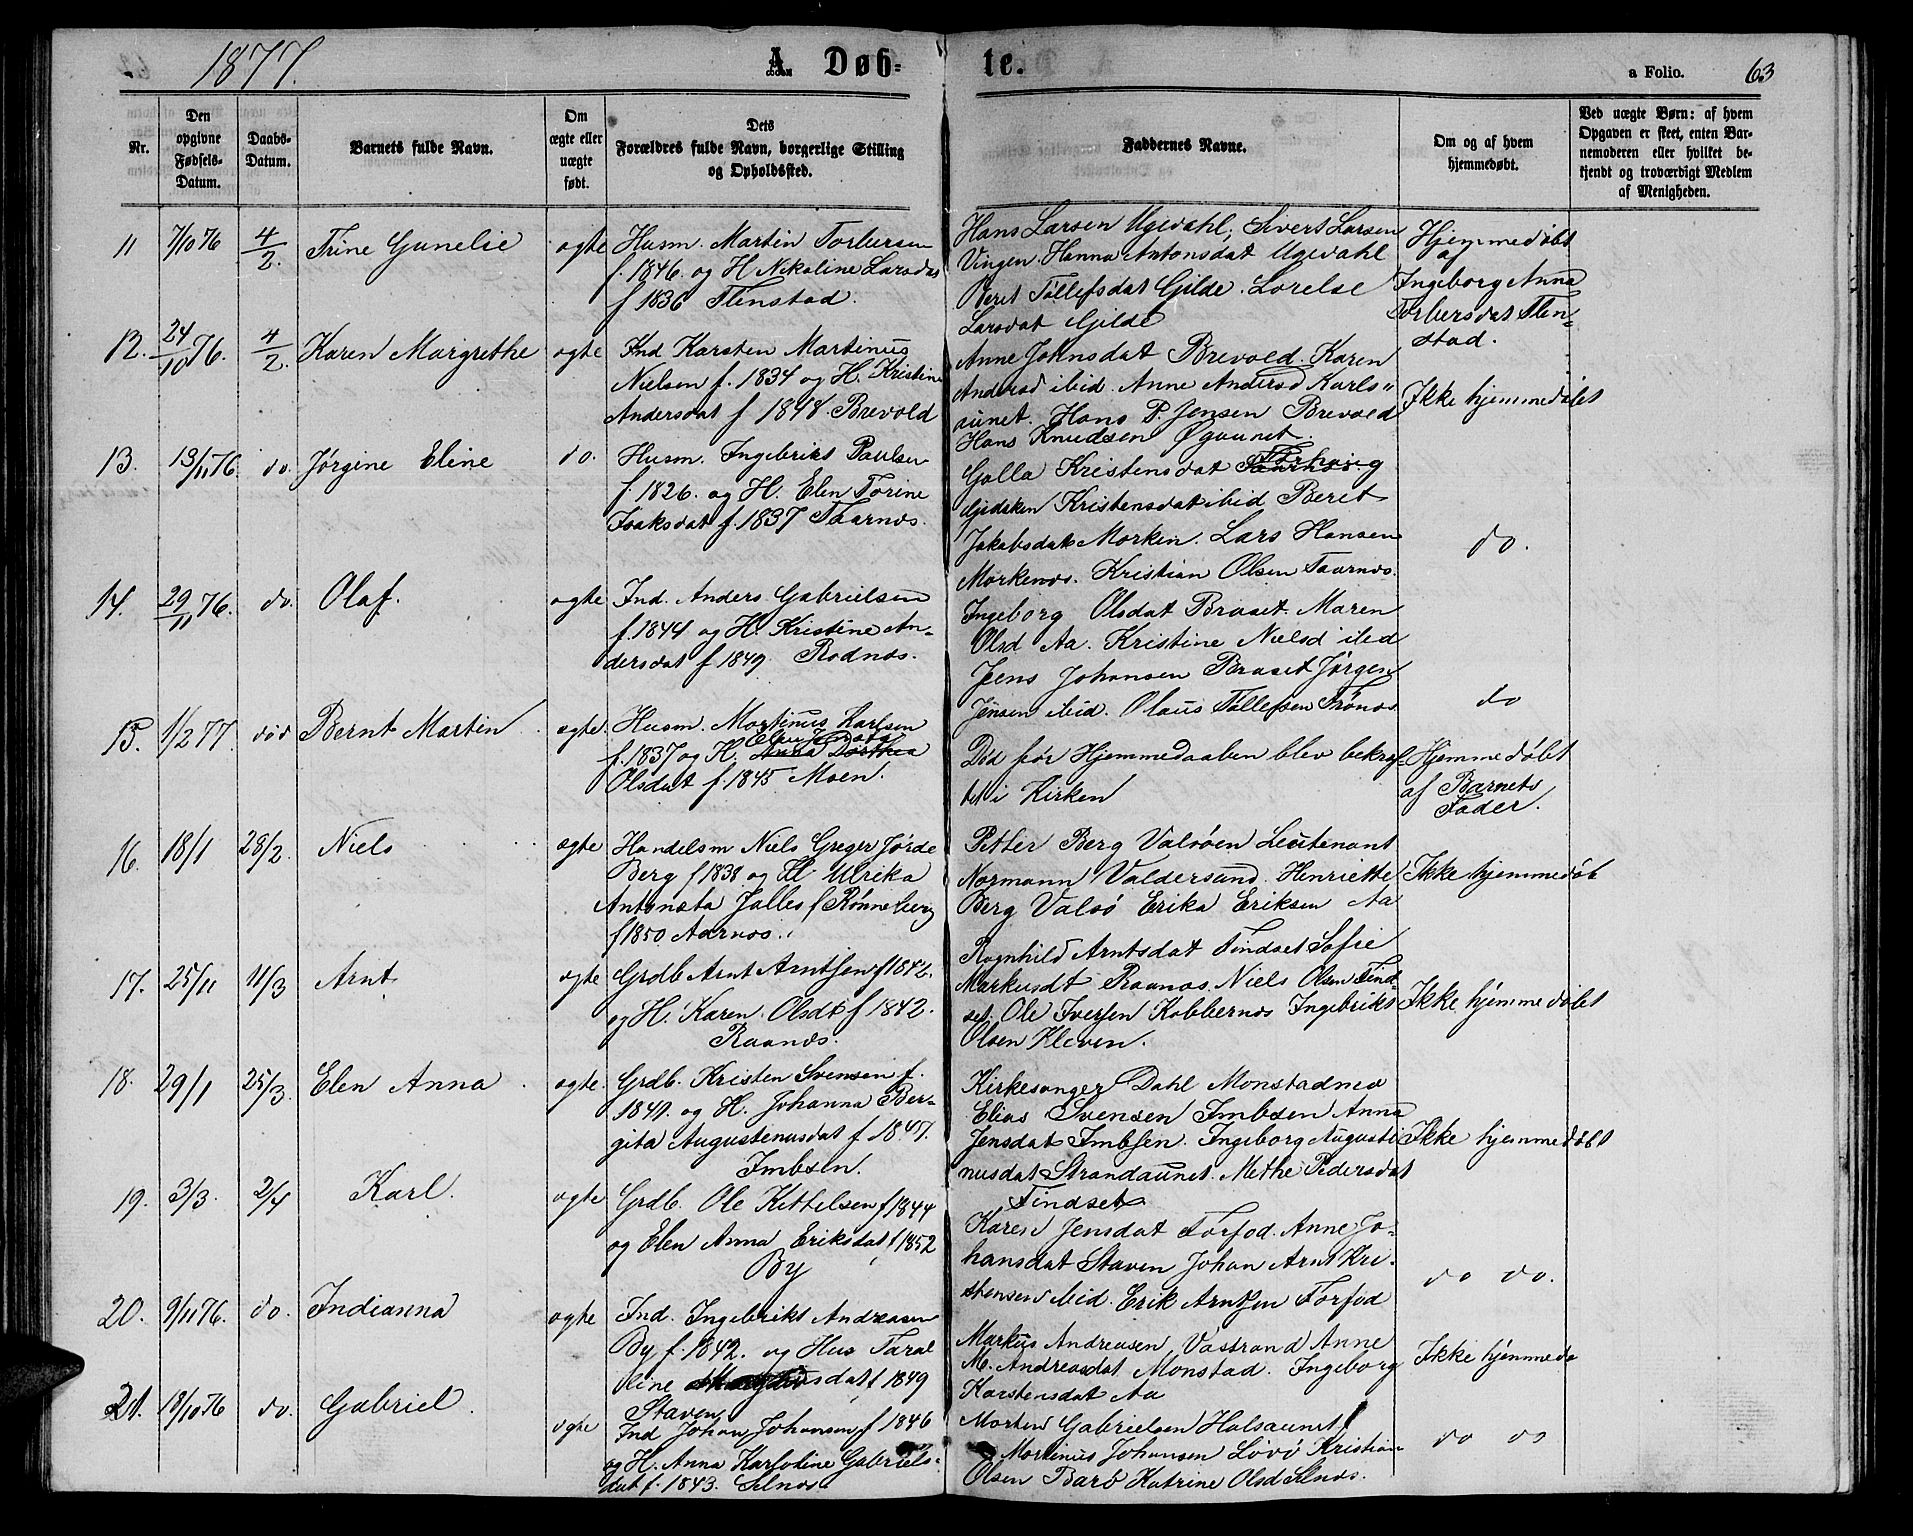 1877.
A. Døb-
te.
a Folio. 63
Nr.
Den opgivne Fødsels-Datum.
Daabs-Datum.
Barnets fulde Navn.
Om ægte eller uægte født.
Dets Forældres fulde Navn, borgerlige Stilling og Opholdssted.
Faddernes Navne.
Om og af hvem hjemmedøbt.
Ved uægte Børn: af hvem Opgaven er skeet, enten Barnemoderen eller hvilket bekjendt og troværdigt Medlem af Menigheden.
11 7/10 76 4/2. Trine Gunelie ægte
Husm. Martin Torbersen
f. 1846. og H. Nikoline Larsdat
f 1836 Flenstad.
Hans Larsen Ugedahl, Sivert Larsen
Vingen. Hanna Antonsdat Ugedahl
Beret Tøllefsdat Gilde. Lorelse
Larsdat Gilde
Hjemmedøbt
af
Ingeborg Anna
Torbersdat Flen-
stad.
12. 24/10 76. 4/2. Karen Margrethe ægte
Ind Karsten Martinus
Nielsen f. 1834 og H. Kristine
Andersdat f 1848 Brevold
Anne Johnsdat Brevold. Karen
Andersd ibid. Anne Andersd Karls-
aunet. Hans P. Jensen Brevold
Hans Knudsen Øyaunet.
Ikke hjemmedøbt
13. 13/11 76. do. Jørgine Eline do.
Husm. Ingebrigt Paulsen
f. 1826. og H. Elen Torine
Isaksdat f. 1837 Taarnæs.
Golla Kristensdat Tørhaug
Gjertken Kristensdat ibid Beret
Jakobsdat Morken. Lars Hansen
Morkenæs. Kristian Olsen Taarnæs.
do.
14. 29/11 76. do. Olaf. ægte
Ind. Anders Gabrielsen
f. 1844 og H. Kristine An-
dersdat f 1849. Rødnæs.
Ingeborg Olsdat Braset. Maren
Olsd Aa. Kristine Nielsd ibid
Jens Johansen Braset Jørgen
Jensen ibid. Olaus Tøllefsen Trønæs
do
15. 1/2 77. død Bernt Martin ægte.
Husm. Martinus Karlsen
f. 1837 og H. Anna Dorthea
Olsdat f. 1845 Moen.
Død før Hjemmedaaben blev bekræf-
tet i Kirken
Hjemmedøbt
af Barnets
Fader.
16. 18/1 28/2. Niels ægte
Handelsm Niels Greger Jørde
Berg f 1838 og H Ulrika
Antoneta Jalles f Rønneberg
f 1850 Aarnæs.
Petter Berg Valsøen Leutenant
Normann Valdersund. Henriette
Berg Valsø Erika Eriksen Aa
Ikke hjemmedøbt
17. 25/11 11/3 Arnt ægte
Grdb Arnt Arntsen f 1842.
og H. Karen Olsdt f 1842.
Raanæs.
Ragnhild Arntsdat Tindset Sofie
Markusdt Raanæs. Niels Olsen Tind-
set. Ole Iversen Kobbernæs Ingebrikt
Olsen Kleven.
Ikke hjemmedøbt
18. 29/1 25/3. Elen Anna ægte.
Grdb. Kristen Svensen f.
1849. og H. Johanna Ber-
gita Augustenusdat f 1847.
Imbsen.
Kirkesanger Dahl Monstadnes
Elias Svensen Imbsen Anna
Jensdat Imbsen. Ingeborg Augusti-
nusdat Strandaunet. Methe Pedersdat
Tindset
Ikke hjemmedøbt
19. 3/3. 2/4 Karl. ægte
Grdb. Ole Kittelsen f 1844
og Elen Anna Eriksdat f 1852
By
Karen Jensdat Forfod. Anne Jo-
hansdat Staven Johan Arnt Kri-
stensen ibid. Erik Arntzen Forfod
do do.
20. 9/11 76. do. Indianna ægte
Ind. Ingebrikt Andreasen
By f. 1842. og Hus Taral
dine f 1849
Staven
Markus Andreasen Vastrand Anne
M. Andreasdat Monstad. Ingeborg
Karstensdat Aa
Ikke hjemmedø
21. 18/10 76 do. Gabriel. ægte
Ind Johan Johansen f 1846
og H. Anna Karlotine Gabriels-
dat f. 1843. Selnæs
Morten Gabrielsen Halsaunet
Martinus Johansen Løvø Kristian
Olsen Barø Katrine Olsd Selnæs.
do do